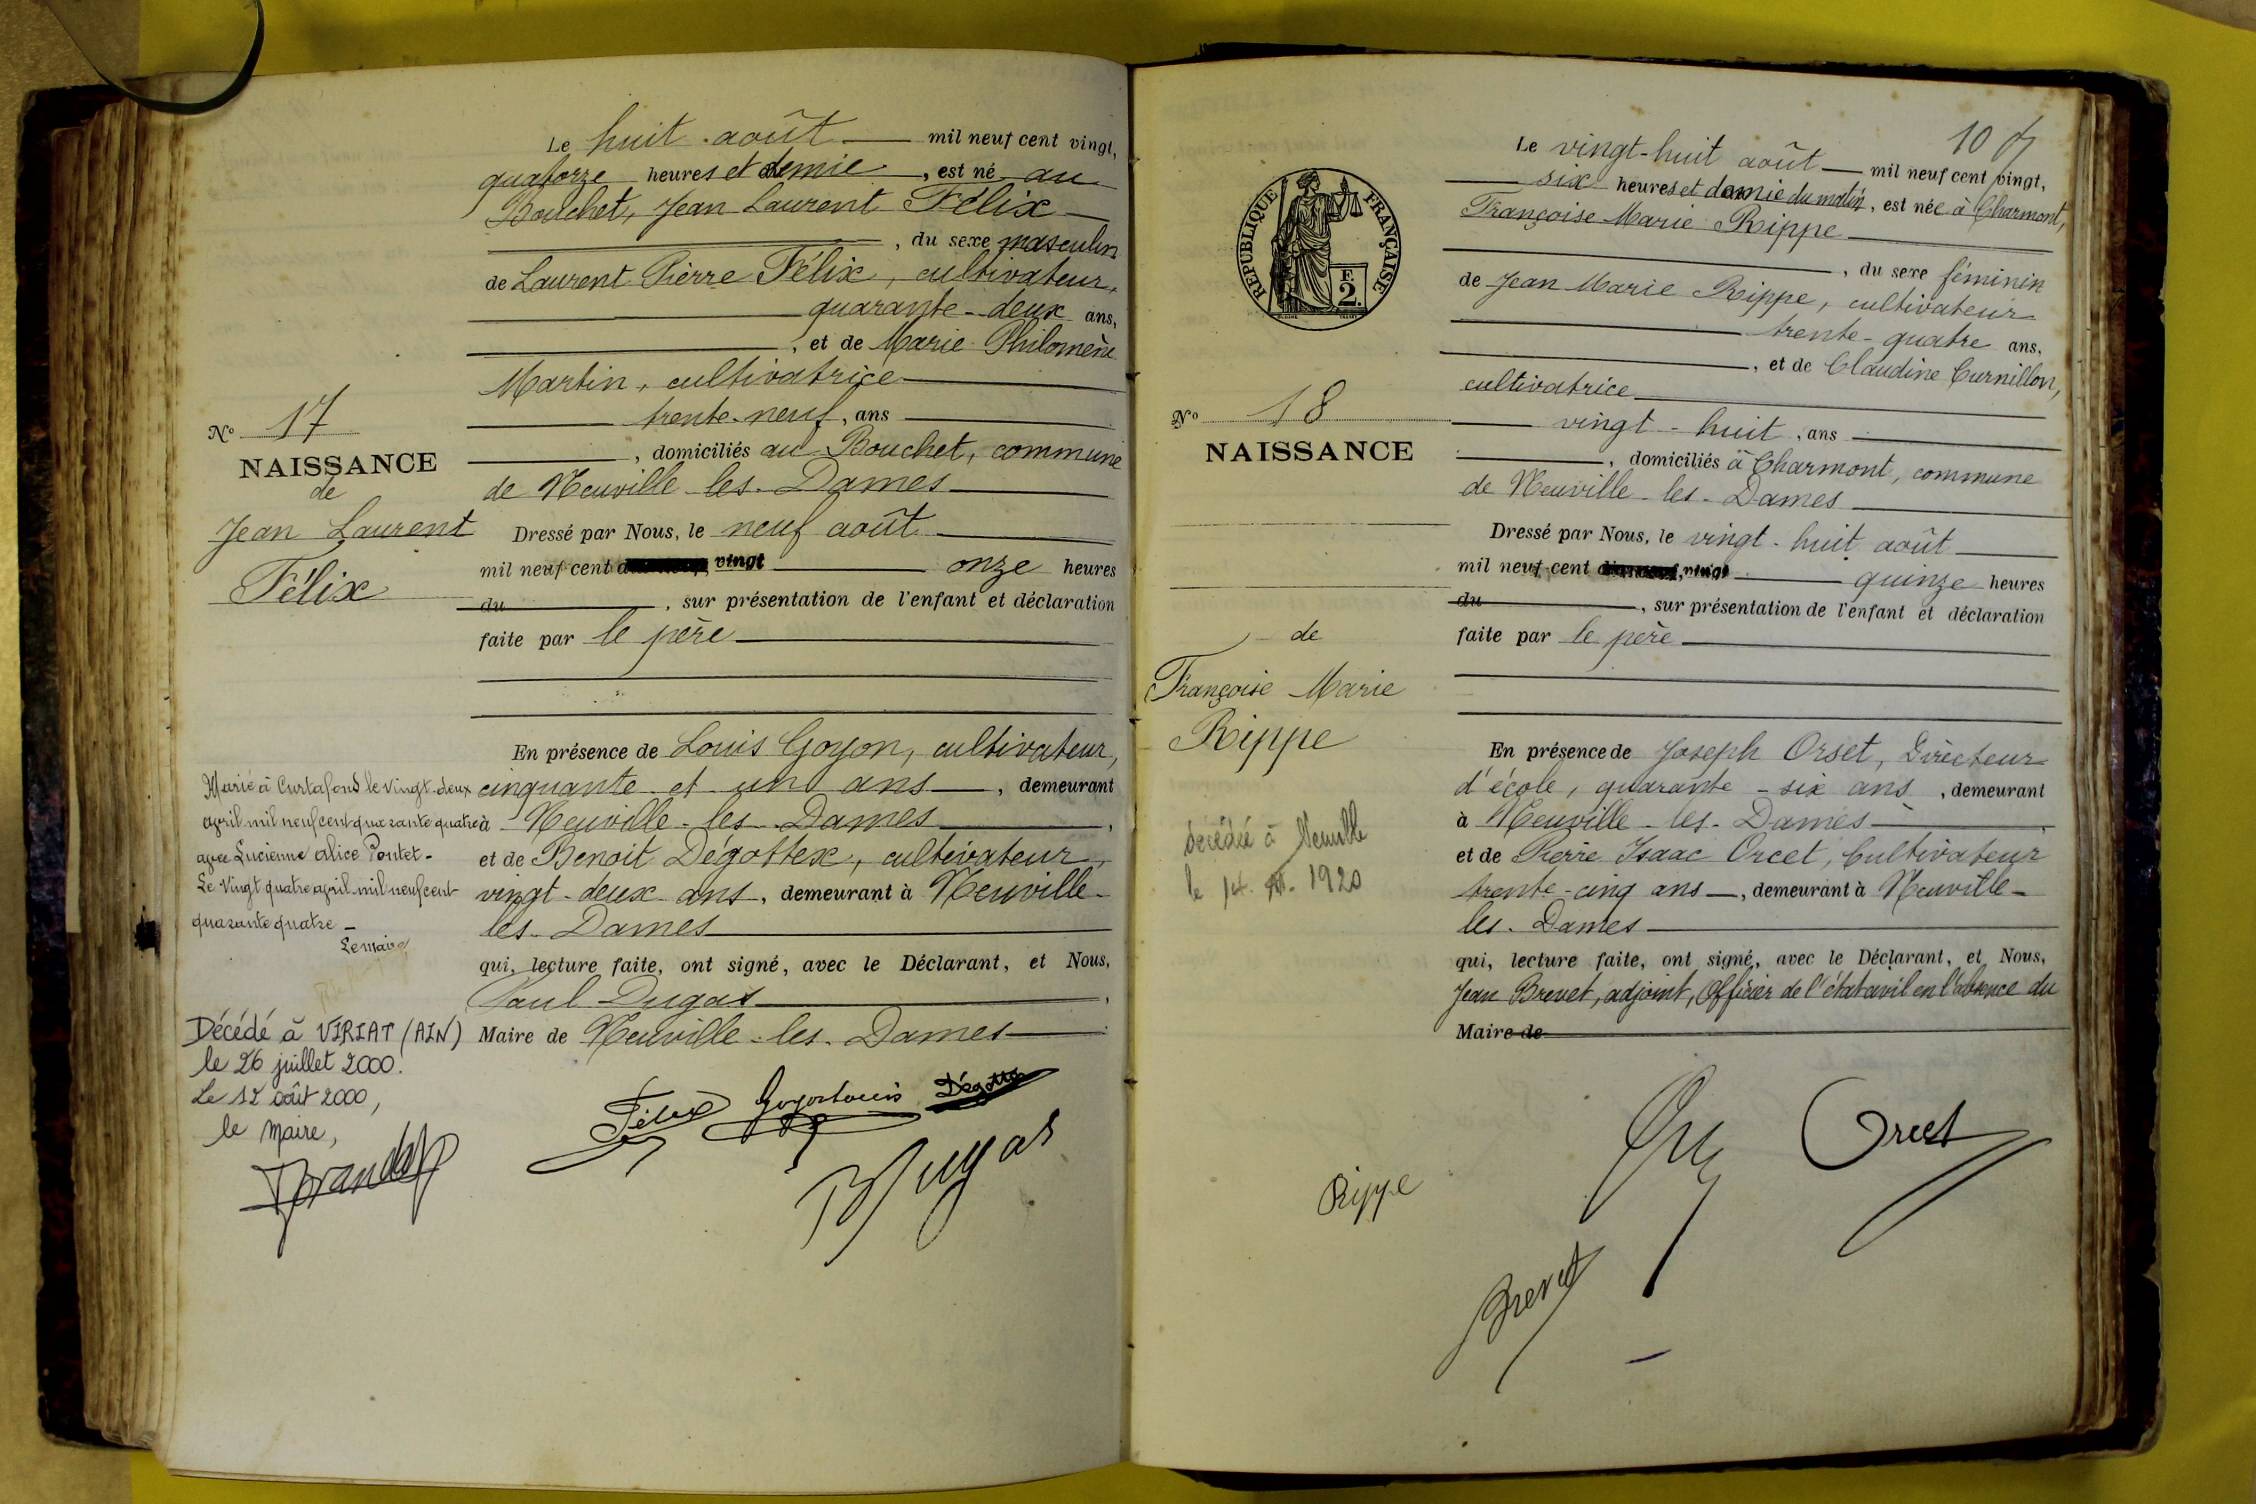 Le huit août mil neuf cent vingt,
quatorze heures et demie, est né au
Bouchet, Jean Laurent Félix
, du sexe masculin
de Laurent Pierre Félix, cultivateur,
quarante-deux ans,
, et de Marie Philomène
Martin, cultivatrice
trente-neuf, ans
, domiciliés au Bouchet, commune
de Neuville-les-Dames
Dressé par Nous, le neuf août
mil neuf cent vingt onze heures
du , sur présentation de l'enfant et déclaration
faite par le père
En présence de Louis Goyon, cultivateur,
cinquante et un ans, demeurant
à Neuville-les-Dames,
et de Benoit Dégottex, cultivateur,
vingt-deux ans, demeurant à Neuville-
les-Dames
qui, lecture faite, ont signé, avec le Déclarant, et Nous,
Paul Dugas,
Maire de Neuville-les-Dames
Félix Goyon Louis Dégottex
Dugas
No 17
NAISSANCE
de
Jean Laurent
Félix
Marié à Curtafond le vingt-deux
avril mil neuf cent quarante quatre
avec Lucienne Alice Pontet-
Le Vingt quatre avril mil neuf cent
quarante quatre -
Le maire,
Décédé à VIRIAT (AIN)
le 26 juillet 2000.
Le 12 août 2000,
le Maire,
10
Le vingt-huit août mil neuf cent vingt,
six heures et demie du matin, est née à Charmont,
Françoise Marie Rippe
, du sexe féminin
de Jean Marie Rippe, cultivateur
trente-quatre ans,
, et de Claudine Curnillon,
cultivatrice
vingt-huit, ans
, domiciliés à Charmont, commune
de Neuville-les-Dames
Dressé par Nous, le vingt-huit août
mil neuf cent vingt quinze heures
du , sur présentation de l'enfant et déclaration
faite par le père
En présence de Joseph Orset, Directeur
d'école, quarante-six ans, demeurant
à Neuville-les-Dames
et de Pierre Isaac Orcet, Cultivateur
trente-cinq ans, demeurant à Neuville-
les-Dames
qui, lecture faite, ont signé, avec le Déclarant, et Nous,
Jean Brevet, adjoint, Officier de l'état civil en l'absence du
Maire de
Orcet
Rippe
Brevet
RÉPUBLIQUE FRANÇAISE
F.
2.
No 18
NAISSANCE
de
Françoise Marie
Rippe
décédée à Neuville
le 14. 1920